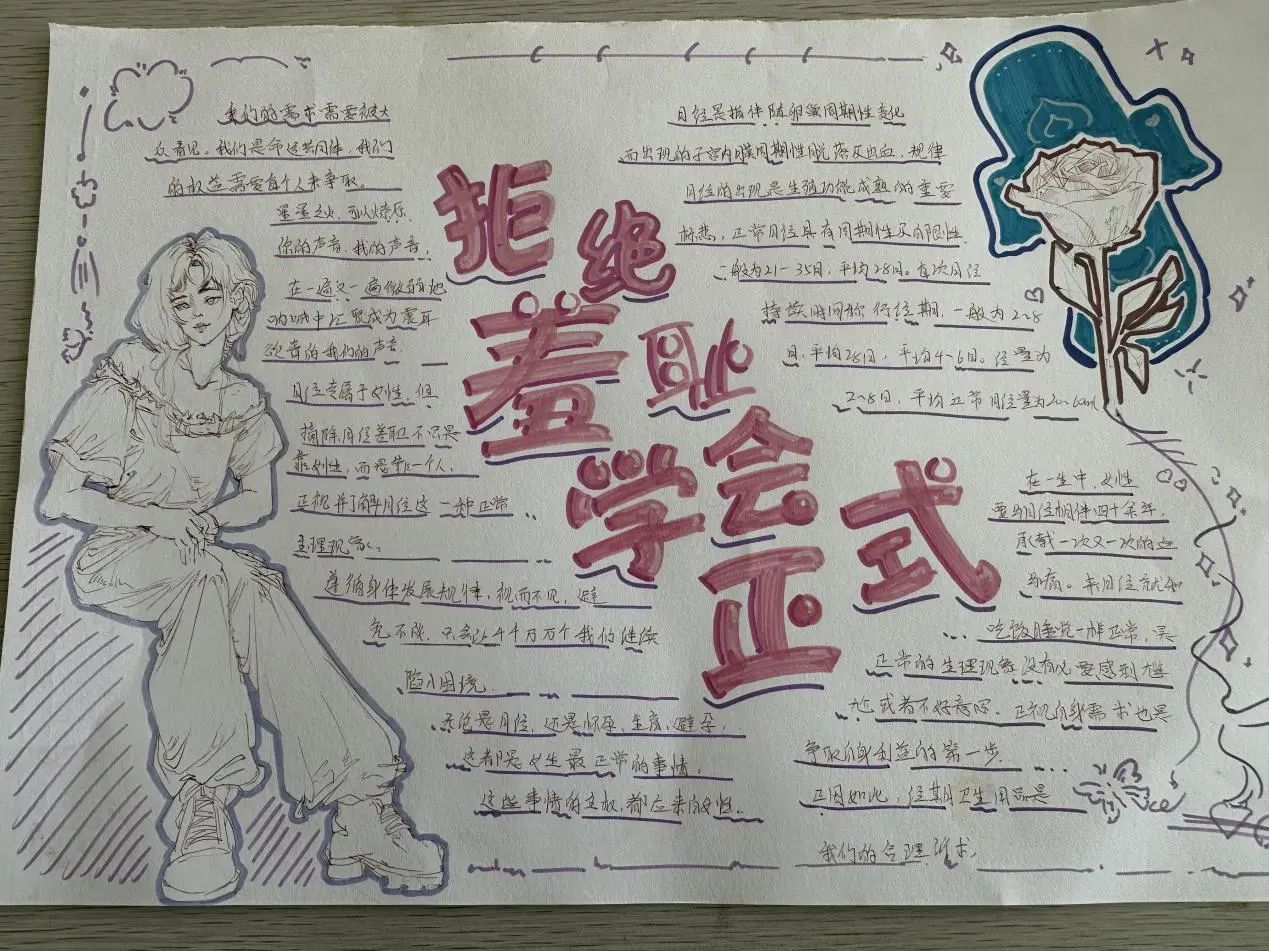 我们的需求需要被大
众看见，我们是命运共同体，我们
的权益需要每个人来争取。
星星之火，可以燎原。
你的声音，我的声音，
在一遍又一遍微弱地
呐喊中汇聚成为震耳
欲聋的我们的声音
月经专属于女性，但
摘除月经羞耻不只是
靠女性，而是靠每一个人，
正视并了解月经这一种正常
生理现象。
遵循身体发展规律，视而不见，避
免不谈，只会让千千万万个我们继续
陷入困境。
无论是月经，还是怀孕，生产，避孕，
这都是女生最正常的事情，
这些事情的主权，都应来自女性。
拒绝
羞耻
学会
正式
月经是指伴随卵巢周期性变化
而出现的子宫内膜周期性脱落及出血，规律
月经的出现是生殖功能成熟的重要
标志，正常月经具有周期性及自限性。
一般为21-35日，平均28日。每次月经
持续时间称行经期，一般为2~8
日，平均28日，平均4~6日。经量为
2~8日，平均正常月经量为20~60ml
在一生中，女性
要与月经相伴四十余年，
承载一次又一次的
痛。来月经就和
吃饭睡觉一样正常，是
正常的生理现象没有必要感到尴
尬或者不好意思。正视自身需求也是
争取自身利益的第一步。
正因如此，经期卫生用品是
我们的合理诉求。